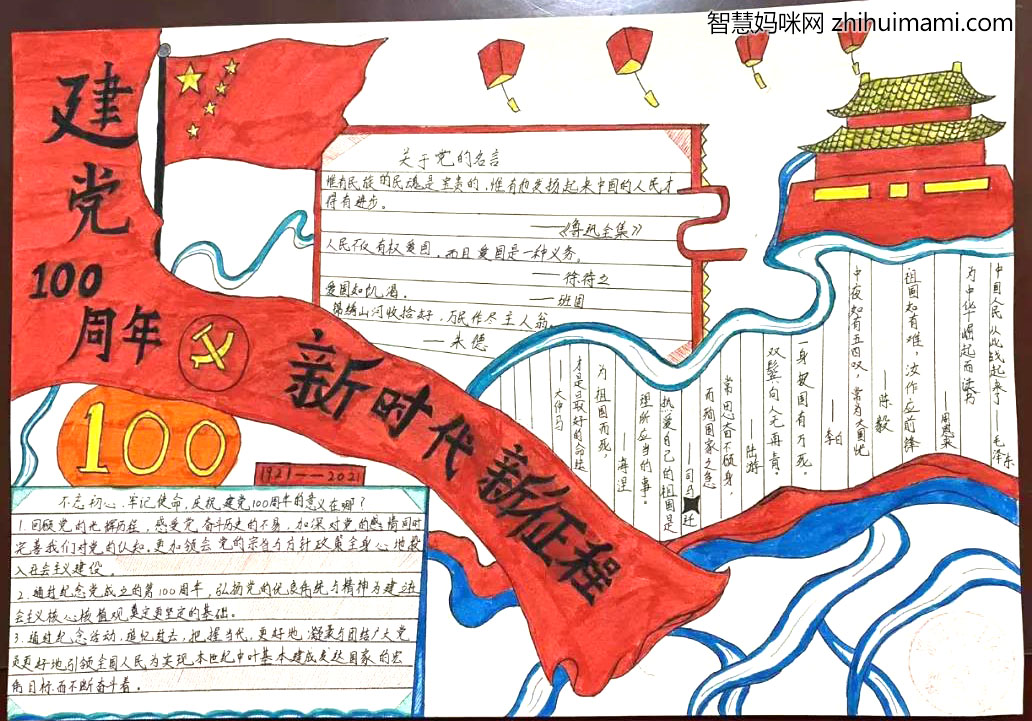 智慧妈咪网 zhihuimami.com
建党
100
周年
新时代 新征程
100
1921——2021
关于党的名言
惟有民族的民魂是宝贵的，惟有他发扬起来中国的人民才
得有进步。
——《鲁迅全集》
人民不仅有权爱国，而且爱国是一种义务。
——徐特立
爱国如饥渴。
——班固
锦绣山河收拾好，万民作尽主人翁。
——朱德
不忘初心、牢记使命，庆祝建党100周年的意义在哪？
1.回顾党的光辉历程，感受党奋斗历史的不易，加深对党的感情同时
完善我们对党的认知。更加领会党的宗旨与方针政策全身心地投
入社会主义建设。
2.通过纪念党成立的第100周年，弘扬党的优良传统与精神为建设
会主义核心核值观奠定更坚定的基础。
3.通过纪念活动，追纪过去，把握当代，更好地凝聚与团结广大党
员更好地引领全国人民为实现本世纪中叶基本建成发达国家的宏
伟目标而不断奋斗着。
中国人民从此站起来了——毛泽东
为中华崛起而读书
——周恩来
祖国如有难，汝作应前锋
——陈毅
中夜如有五四叹，常为大国忧
——李白
一身报国有万死，
双鬓向人无再青。
——陆游
常思奋不顾身，
而殉国家之急
——司马迁
热爱自己的祖国是
理所应当的事。
——海涅
为祖国而死，
才是最好的命运
大仲马